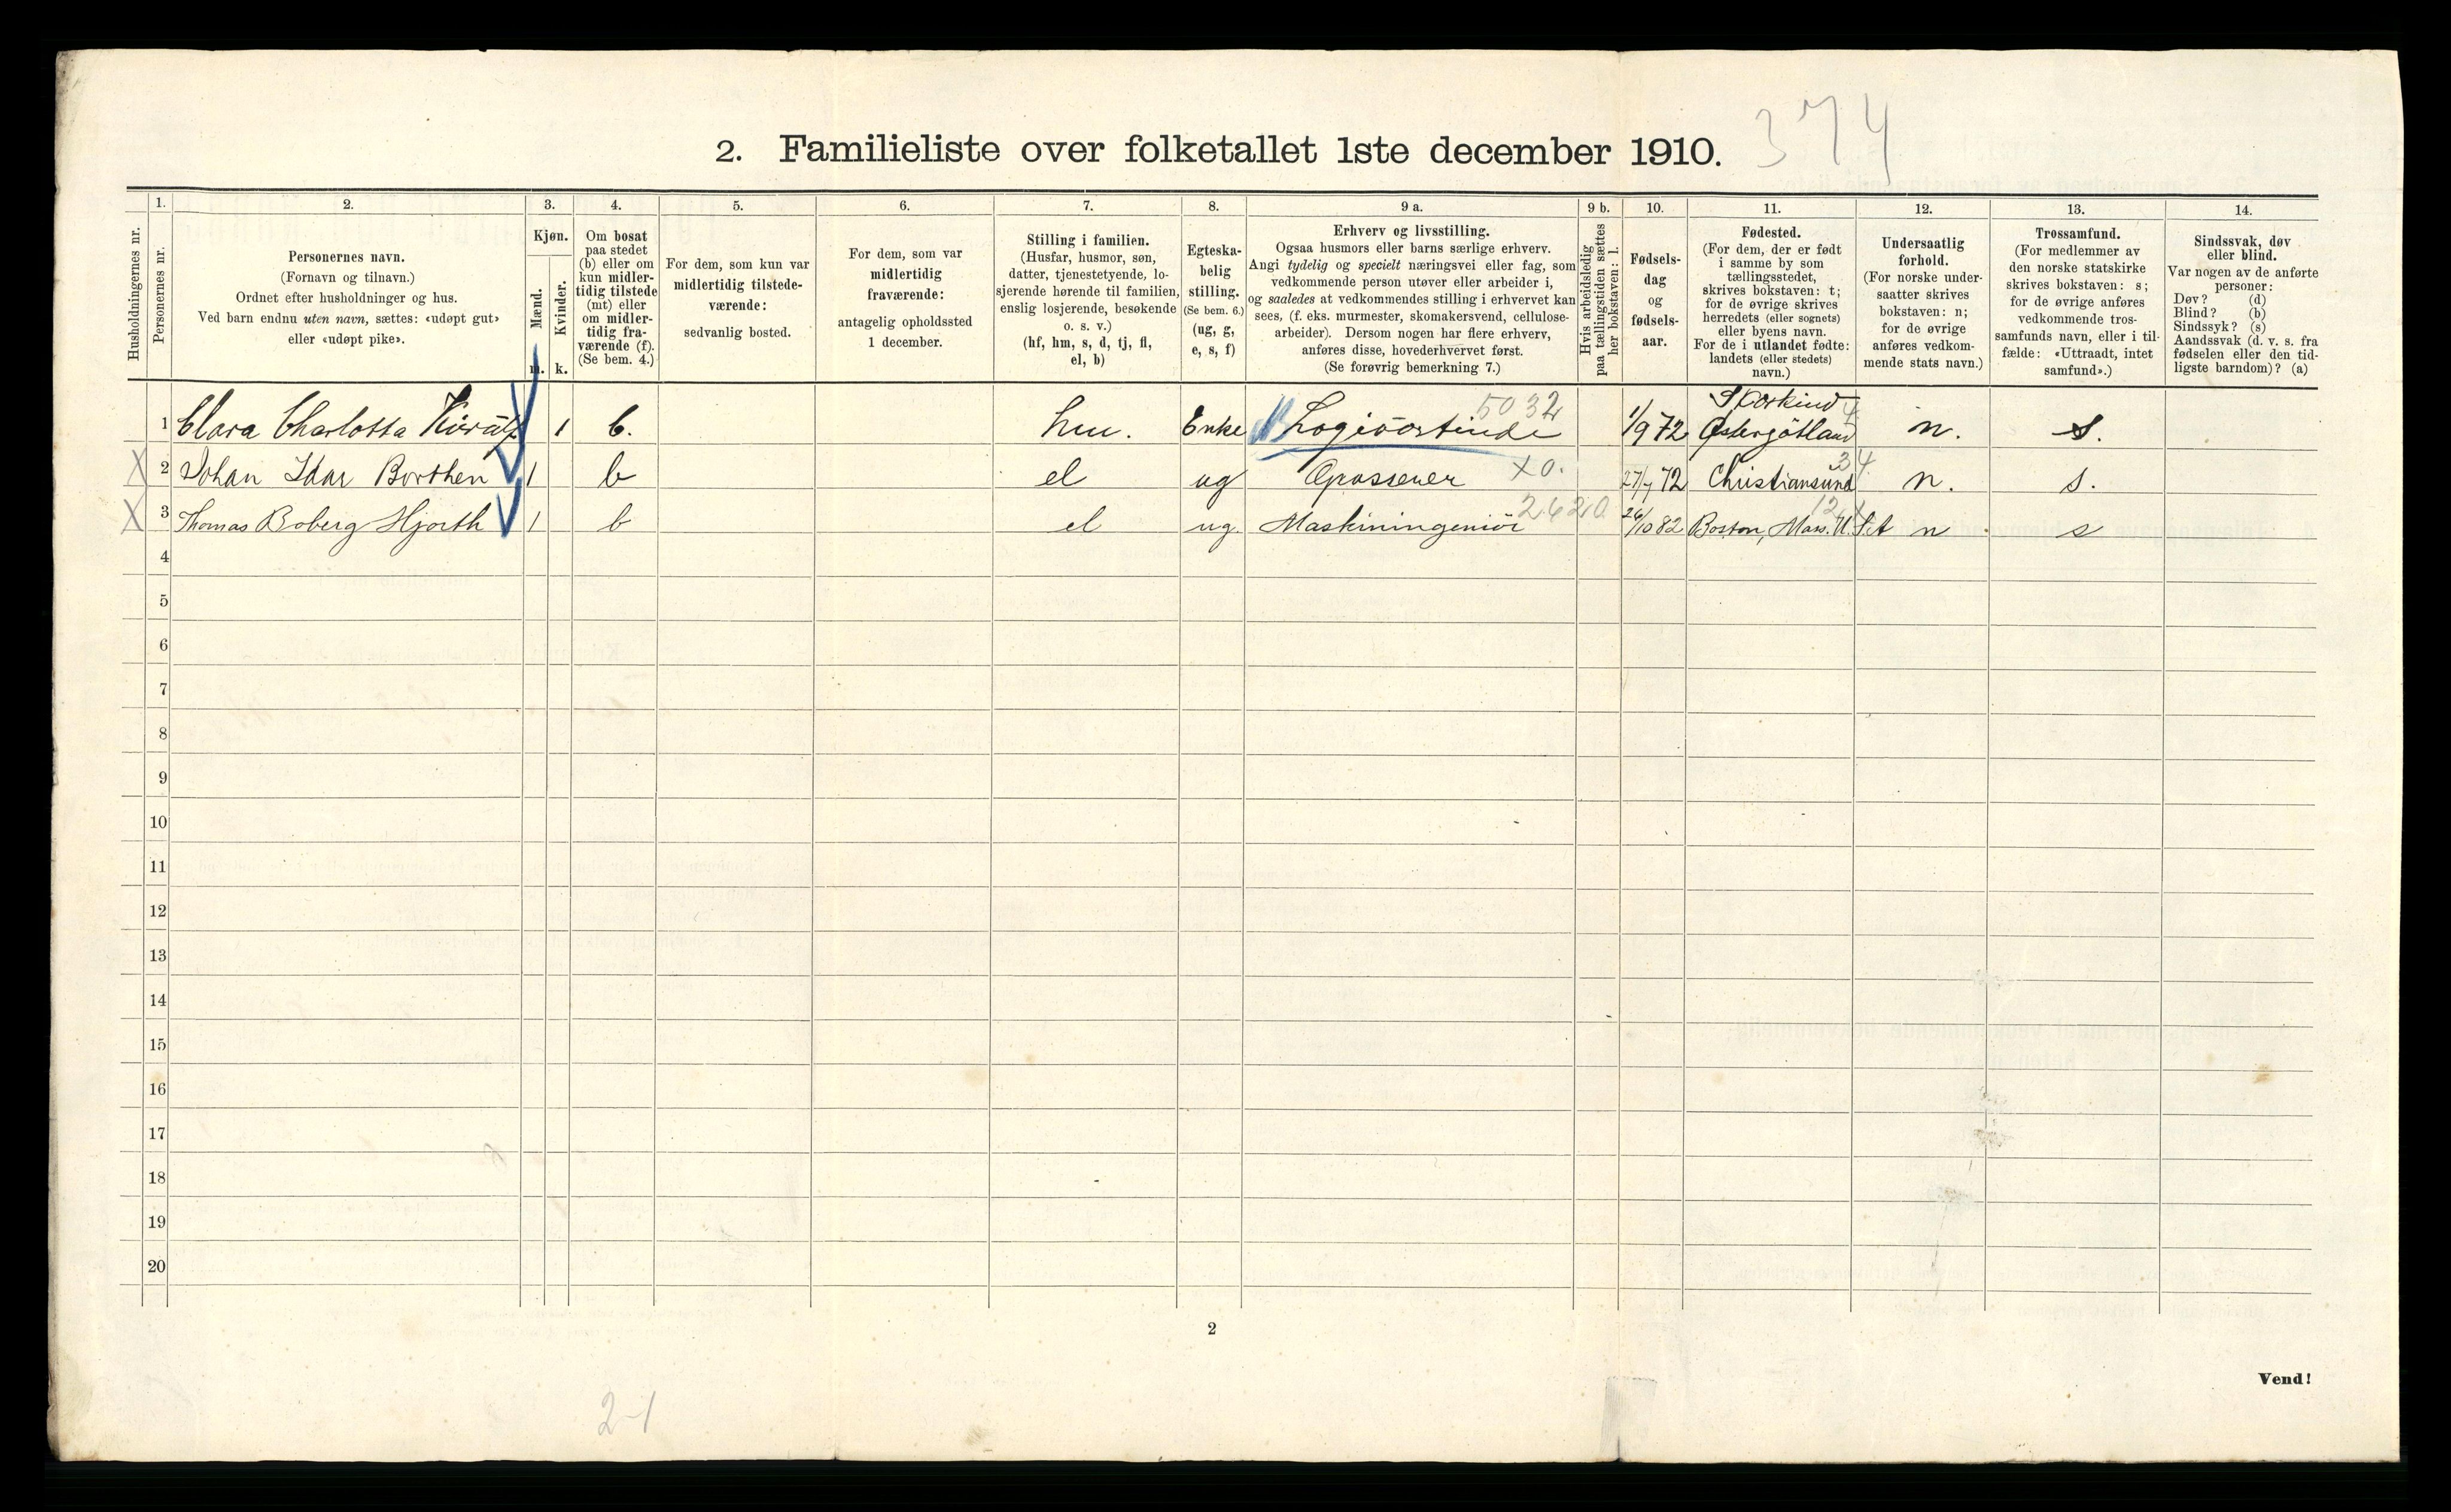 374
2. Familieliste over folketallet 1ste december 1910.
Husholdningernes nr.
1.
Personernes nr.
2.
Personernes navn.
(Fornavn og tilnavn.)
Ordnet efter husholdninger og hus.
Ved barn endnu uten navn, sættes: «udøpt gut»
eller «udøpt pike».
3.
Kjøn.
Mænd.
Kvinder.
m.
k.
4.
Om bosat
paa stedet
(b) eller om
kun midler-
tidig tilstede
(mt) eller
om midler-
tidig fra-
værende (f).
(Se bem. 4.)
5.
For dem, som kun var
midlertidig tilstede-
værende:
sedvanlig bosted.
6.
For dem, som var
midlertidig
fraværende:
antagelig opholdssted
1 december.
7.
Stilling i familien.
(Husfar, husmor, søn,
datter, tjenestetyende, lo-
sjerende hørende til familien,
enslig losjerende, besøkende
o. s. v.)
(hf, hm, s, d, tj, fl,
el, b)
8.
Egteska-
belig
stilling.
(Se bem. 6.)
(ug, g,
e, s, f)
9 a.
Erhverv og livsstilling.
Ogsaa husmors eller barns særlige erhverv.
Angi tydelig og specielt næringsvei eller fag, som
vedkommende person utøver eller arbeider i,
og saaledes at vedkommendes stilling i erhvervet kan
sees, (f. eks. murmester, skomakersvend, cellulose-
arbeider). Dersom nogen har flere erhverv,
anføres disse, hovederhvervet først.
(Se forøvrig bemerkning 7.)
9 b.
Hvis arbeidsledig
paa tællingstiden sættes
her bokstaven: l.
10.
Fødsels-
dag
og
fødsels-
aar.
11.
Fødested.
(For dem, der er født
i samme by som
tællingsstedet,
skrives bokstaven: t;
for de øvrige skrives
herredets (eller sognets)
eller byens navn.
For de i utlandet fødte:
landets (eller stedets)
navn.)
12.
Undersaatlig
forhold.
(For norske under-
saatter skrives
bokstaven: n;
for de øvrige
anføres vedkom-
mende stats navn.)
13.
Trossamfund.
(For medlemmer av
den norske statskirke
skrives bokstaven: s;
for de øvrige anføres
vedkommende tros-
samfunds navn, eller i til-
fælde: «Uttraadt, intet
samfund».)
14.
Sindssvak, døv
eller blind.
Var nogen av de anførte
personer:
Døv? (d)
Blind? (b)
Sindssyk? (s)
Aandssvak (d. v. s. fra
fødselen eller den tid-
ligste barndom)? (a)
5032 4
1 Clara Charlotta 1 b. hm. Enke 1/9 72 Østergötland n. s.
X 2 Johan Idar Borthen 1 b el ug Grosserer X0. 27/7 72 Christiansund 34 n. s.
X 3 Thomas Boberg Hjorth 1 b el ug. Maskiningeniör 2620 26/10 82 Boston, Mass. U.S.A 12 n s
4
5
6
7
8
9
10
11
12
13
14
15
16
17
18
19
20
2
Vend!
2-1